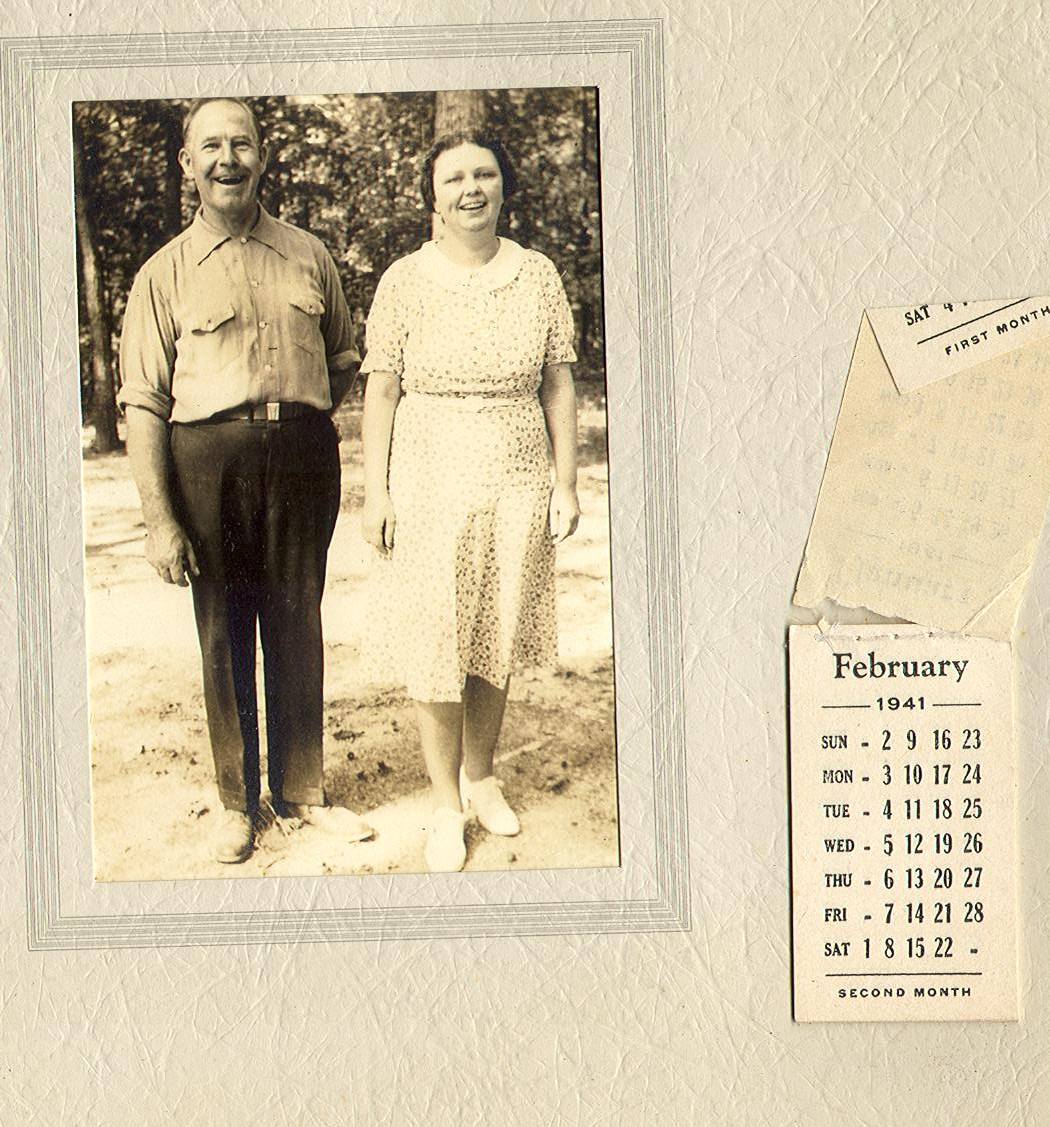 SAT 4
FIRST MONTH
February
1941
SUN - 2 9 16 23
MON - 3 10 17 24
TUE - 4 11 18 25
WED - 5 12 19 26
THU - 6 13 20 27
FRI - 7 14 21 28
SAT 1 8 15 22 -
SECOND MONTH